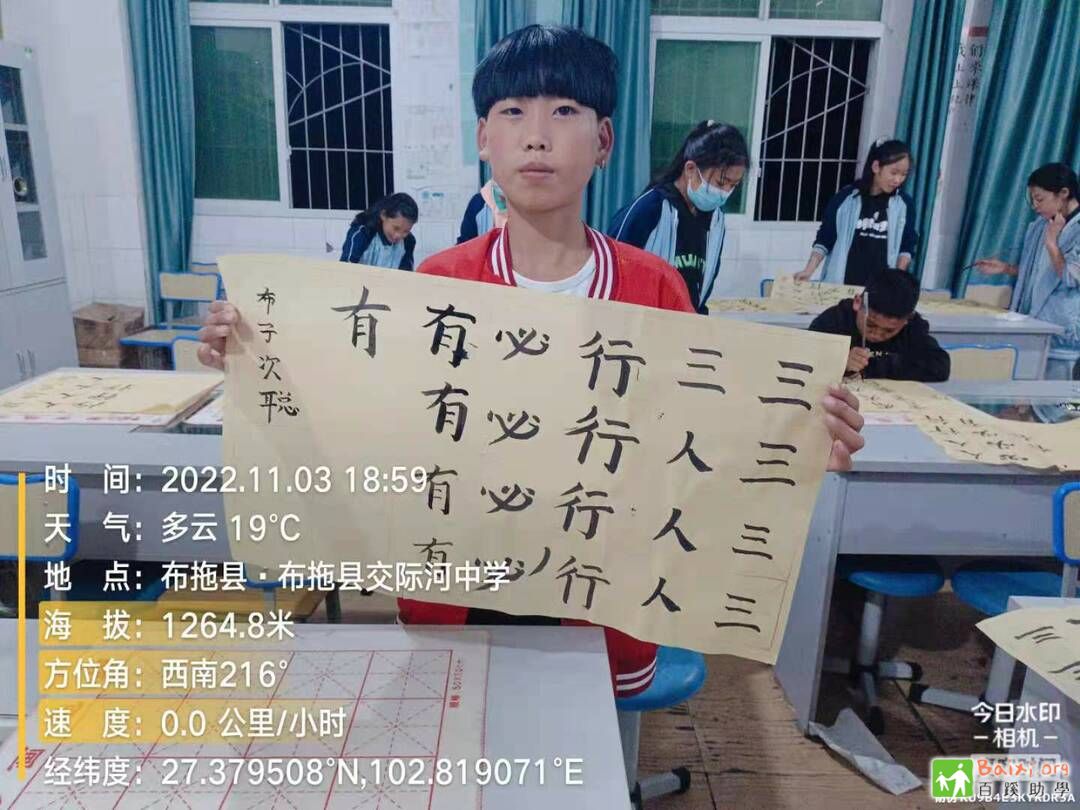 三三三三
三人人人
行行行行
必必必必
有有有有
有
布子次聪
时 间：2022.11.03 18:59
天 气：多云 19℃
地 点：布拖县·布拖县交际河中学
海 拔：1264.8米
方位角：西南216°
速 度：0.0 公里/小时
经纬度：27.379508°N,102.819071°E
今日水印
-相机-
Baixi.org
百蹊助學